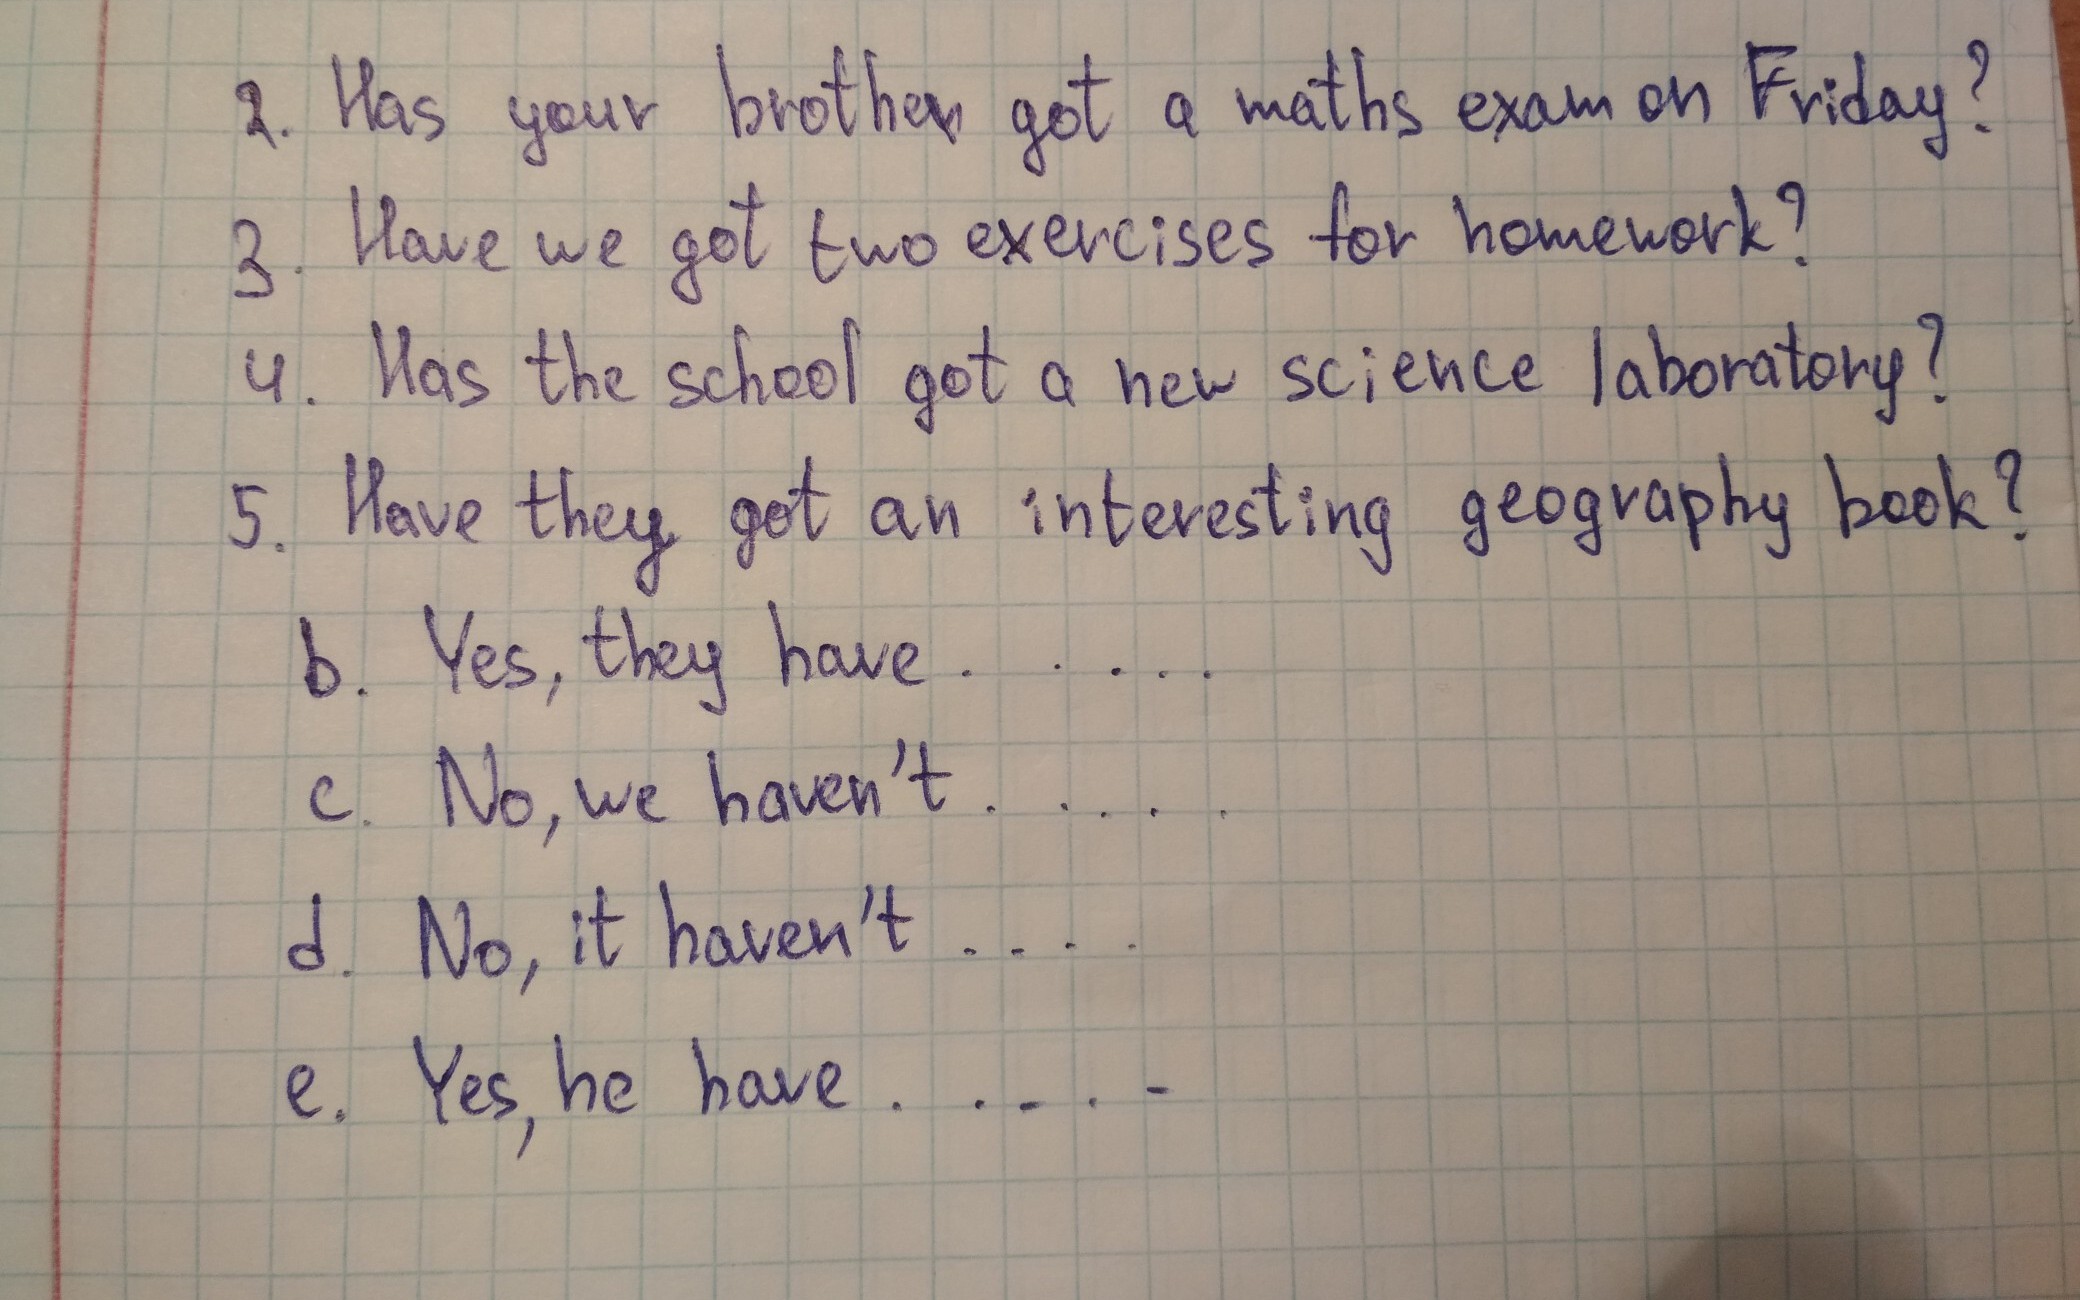 2. Has your brother got a maths exam on Friday?
3. Have we got two exercises for homework?
4. Has the school got a new science laboratory?
5. Have they got an interesting geography book?
b. Yes, they have . . . . . .
c. No, we haven't . . . . .
d. No, it haven't . . . .
e. Yes, he have . . - . -